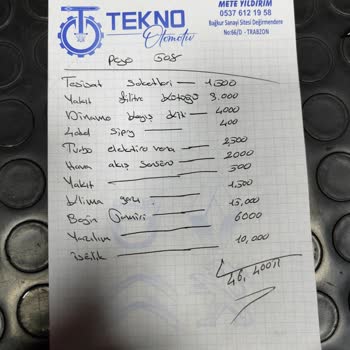 TEKNO
Otomotiv
METE YILDIRIM
0537 612 19 58
Bağkur Sanayi Sitesi Değirmendere
No:66/D - TRABZON
Pejo 508
Tesisat soketleri — 1.500
Yakıt filitre kütüğü 3.000
Dinamo kayış kiti — 4000
400
Turbo elektiro vana — 2,500
Hava akış sensörü — 2000
Yakıt — 500
Klima gazı — 1.500
Beyin Tamiri — 15,000
Yazılım — 6000
İşçilik — 10,000
46.400 TL